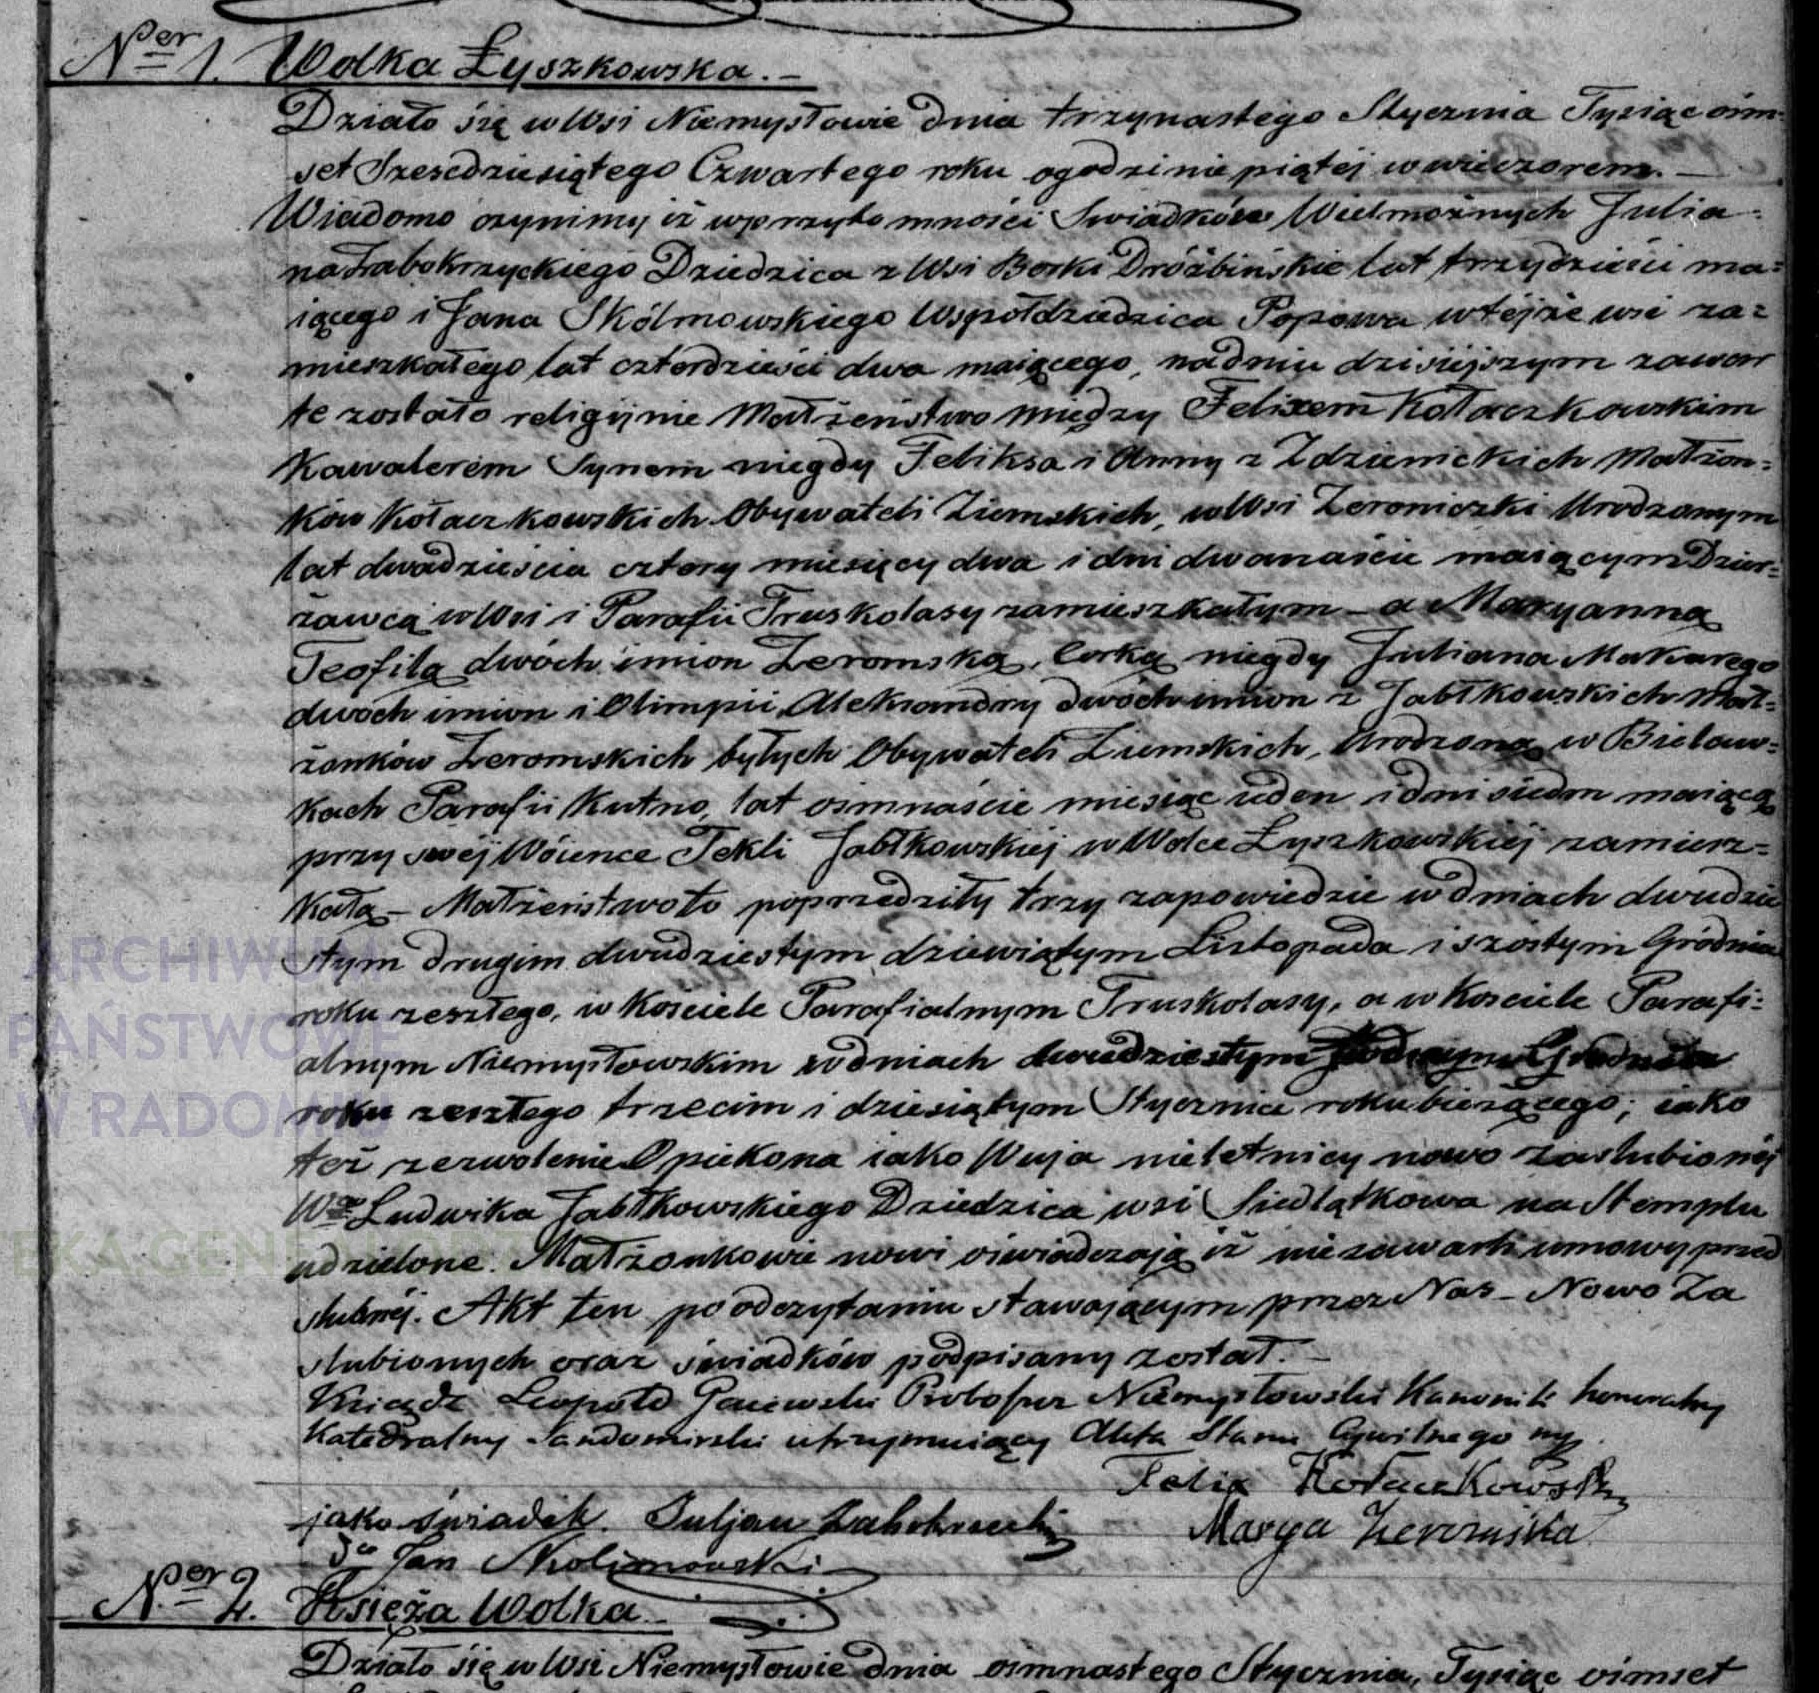 Ner 1. Wolka Łyszkowska. –
Działo się w Wsi Niemysłowie dnia trzynastego Stycznia Tysiąc óśm-
set Szescdziesiątego Czwartego roku o godzinie piątéj w wieczorem. –
Wiadomo czynimy iż w przytomności Swiadków Wielmożnych Julia-
na Zabokrzyckiego Dziedzica z Wsi Borki Dróżbińskie lat trzydzieści ma-
iącego i Jana Skólmowskiego Współdziedzica Popowa w téjże wsi za-
mieszkałego lat czterdzieści dwa maiącego, na dniu dzisiéjszym zawar
te zostało religijnie Małżeństwo między Felixem Kołaczkowskim
Kawalerem Synem niegdy Feliksa i Anny z Zdzienickich Małżon-
ków Kołaczkowskich Obywateli Ziemskich, w Wsi Zeroniczki Urodzonym
lat dwadzieścia cztery miesięcy dwa i dni dwanaście maiącym Dzier-
żawcą w Wsi i Parafii Truskolasy zamieszkałym – a Maryanną
Teofilą dwóch imion Zeromską, Corką niegdy Juliana Makarego
dwóch imion i Olimpii Aleksandry dwóch imion z Jabłkowskich Mał-
żonków Zeromskich byłych Obywateli Ziemskich, Urodzoną w Bielaw-
kach Parafii Kutno, lat ośmnaście miesiąc ieden i dni siedm maiącą
przy swéj Wóience Tekli Jabłkowskiéj w Wolce Łyszkowskiéj zamiesz-
kałą – Małżeństwo to poprzedziły trzy zapowiedzie w dniach dwudzie
stym drugim dwudziestym dziewiątym Listopada i szóstym Grudnia
roku zeszłego, w Kościele Parafialnym Truskolasy, a w Kosciele Parafi-
alnym Niemysłowskim w dniach dwudziestym Grudnia
roku zeszłego trzecim i dziesiątym Stycznia roku bieżącego; iako
też zezwolenie Opiekona iako Wuja nieletniey nowo zaslubionéj
Wgo Ludwika Jabłkowskiego Dziedzica wsi Siedlątkowa na Stemplu
udzielone. Małżonkowie nowi oświadczają iż nie zawarli umowy przed
slubnéj. Akt ten po odczytaniu stawającym przez Nas – Nowo Za
slubionych oraz świadków podpisany został. –
Xiądz Leopold Gaiewski Proboszcz Niemysłowski Kanonik honoralny
Katedralny Sandomirski utrzymuiący Akta Stanu Cywilnego
Felix Kołaczkowski
jako świadek. Juljan Zabokrzecki
Marya Zeromska
do Jan Skolimowski
Ner 2. Księża Wolka. –
Działo się w Wsi Niemysłowie dnia osmnastego Stycznia, Tysiąc ośmset